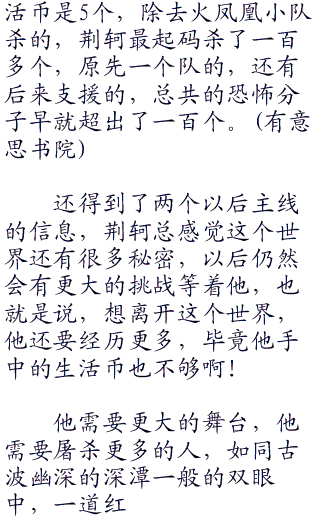 活币是5个，除去火凤凰小队
杀的，荆轲最起码杀了一百
多个，原先一个队的，还有
后来支援的，总共的恐怖分
子早就超出了一百个。(有意
思书院)
还得到了两个以后主线
的信息，荆轲总感觉这个世
界还有很多秘密，以后仍然
会有更大的挑战等着他，也
就是说，想离开这个世界，
他还要经历更多，毕竟他手
中的生活币也不够啊！
他需要更大的舞台，他
需要屠杀更多的人，如同古
波幽深的深潭一般的双眼
中，一道红